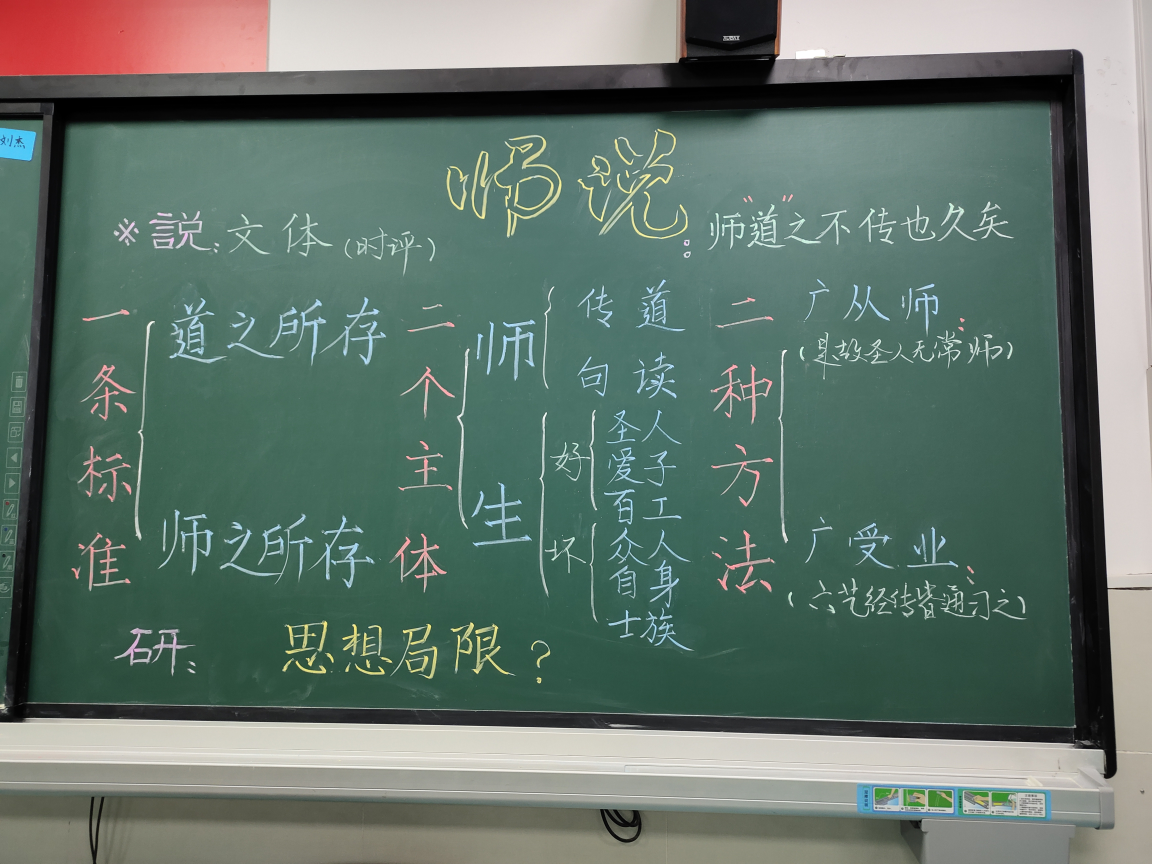 师说
刘杰
※説：文体（时评）
：师“道”之不传也久矣
一条标准
道之所存
师之所存
二个主体
师
传道
句读
生
好
圣人
爱子
百工
坏
众人
自身
士族
二种方法
广从师：
（是故圣人无常师）
广受业：
（六艺经传皆通习之）
研：
思想局限？